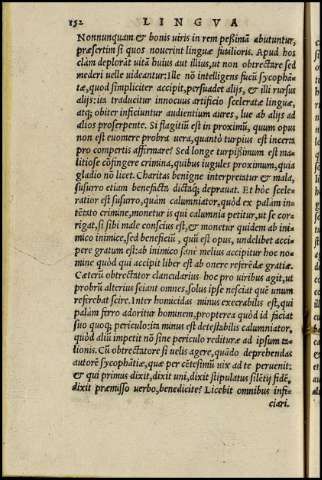 152 LINGVA
Nonnunquam & bonis uiris in rem peßimā abutuntur,
præsertim si quos nouerint linguæ futilioris. Apud hos
clàm deplorāt uitā huius aut illius, ut non obtrectare sed
mederi uelle uideantur: Ille nō intelligens fucū sycophā-
tæ, quod simpliciter accipit, persuadet alijs, & illi rursus
alijs: ita traducitur innocuus artificio sceleratæ linguæ,
atq; obiter inficiuntur audientium aures, lue ab alijs ad
alios proserpente. Si flagitiū est in proximū, quum opus
non est euomere probra uera, quantò turpius est incerta
pro compertis affirmare? Sed longe turpißimum est ma-
litiose cōfingere crimina, quibus iugules proximum, quia
gladio nō licet. Charitas benigne interpretatur & mala,
susurro etiam benefacta dictaq; deprauat. Et hôc scele-
ratior est susurro, quàm calumniator, quòd ex palàm in-
tētato crimine, monetur is qui calumnia petitur, ut se cor-
rigat, si sibi male conscius est, & monetur quidem ab ini-
mico inimice, sed beneficiū, quū est opus, undelibet acci-
pere gratum est: ab inimico sanè melius accipitur hoc no-
mine quòd qui accipit liber est ab onere referēdæ gratiæ.
Cæterū obtrectator clancularius hoc pro uiribus agit, ut
probrū alterius sciant omnes, solus ipse nesciat quē unum
referebat scire. Inter homicidas minus execrabilis est, qui
palàm ferro adoritur hominem, propterea quòd id faciat
suo quoq; periculo: ita minus est detestabilis calumniator,
quòd aliū impetit nō sine periculo redituræ ad ipsum ta-
lionis. Cū obtrectatore si uelis agere, quādo deprehendas
autorē sycophātiæ, quæ per cētesimū uix ad te peruenit:
& qui primus dixit, dixit uni, dixit stipulatus silētij fidē,
dixit præmisso uerbo, benedicite? Licebit omnibus infi-
ciari.